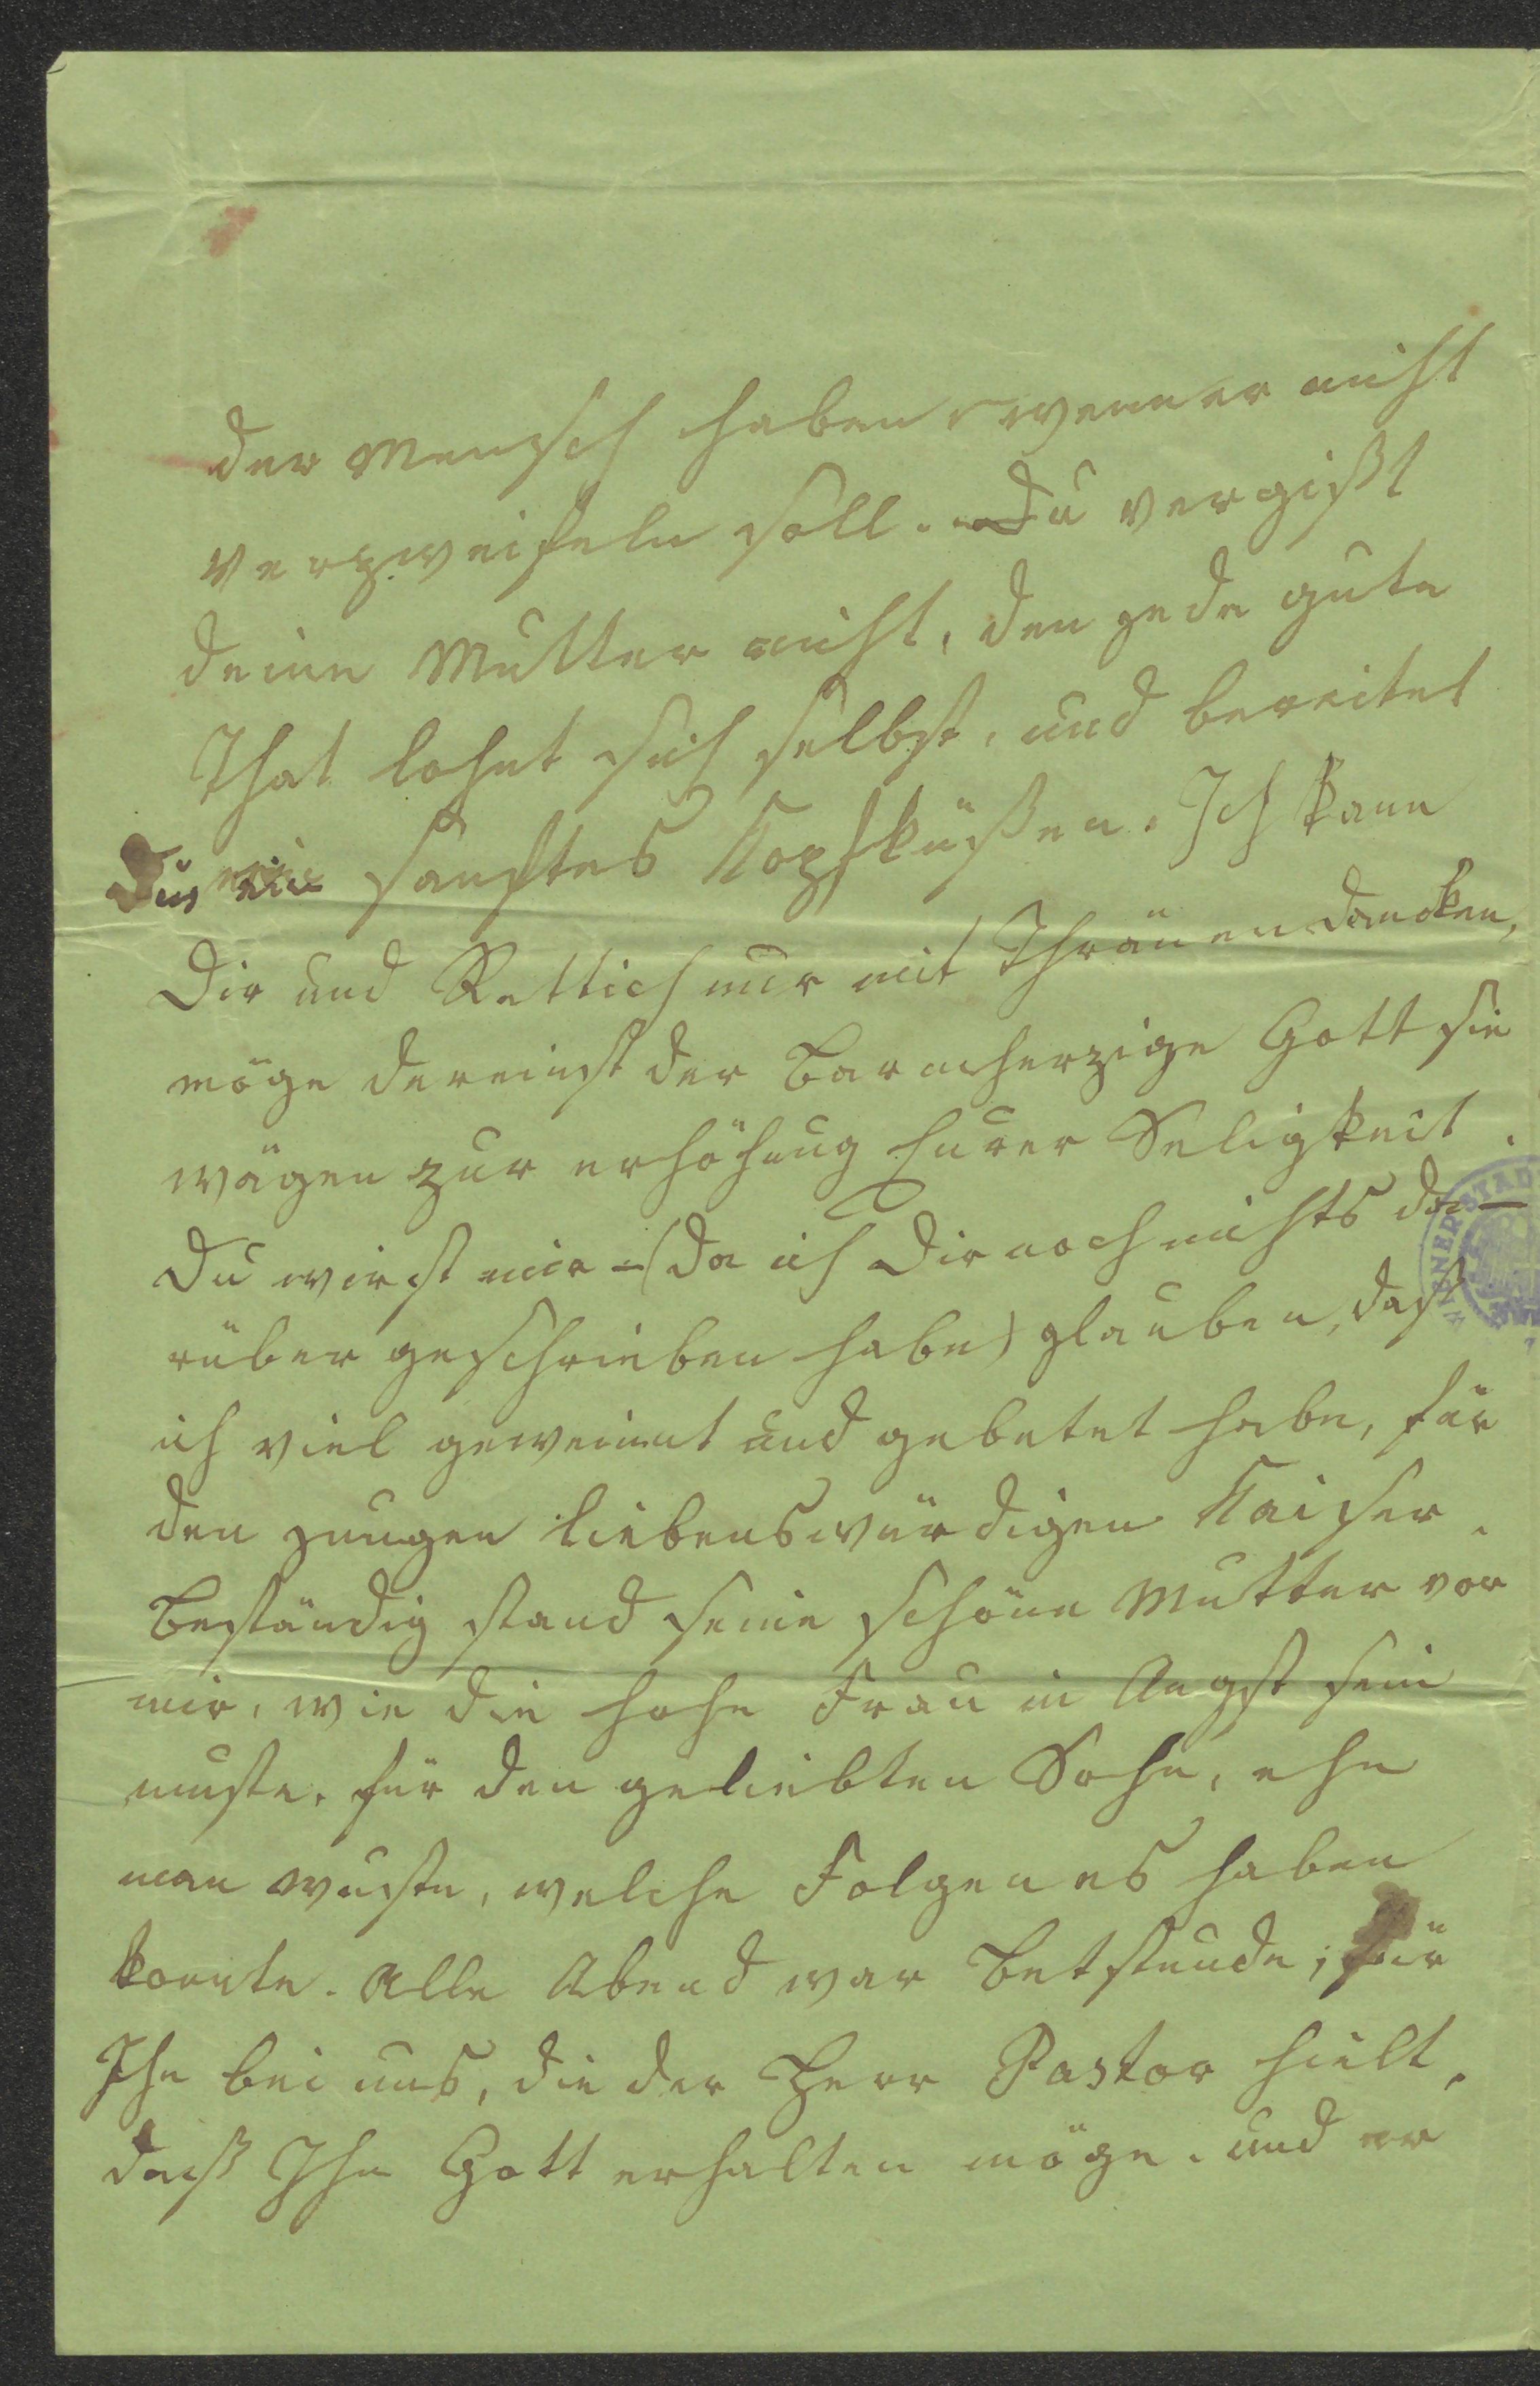 der Mensch haben, wenn er nicht
verzweifeln soll. Du vergißt
deine Mutter nicht, den jede gute
That lohnt sich selbst, und bereitet
ein sanftes Kopfküßen. Ich kann
Dir und Rettich nur mit Thränen dancken,
möge dereinst der Barmherzige Gott sie
wägen zur erhöhung Eurer Seligkeit.
Du wirst mir – (da ich Dir noch nichts da-
rüber geschrieben habe) glauben, daß
ich viel geweint und gebetet habe, für
den jungen liebenswürdigen Kaiser.
Beständig stand seine schöne Mutter vor
mir, wie die hohe Frau in Angst sein
muste, für den geliebten Sohn, ehe
man wuste, welche Folgen es haben
konnte. Alle Abend war Betstunde, für
Ihn bei uns, die der Herr Pastor hielt,
daß Ihn Gott erhalten möge. und er
WIENER STAD